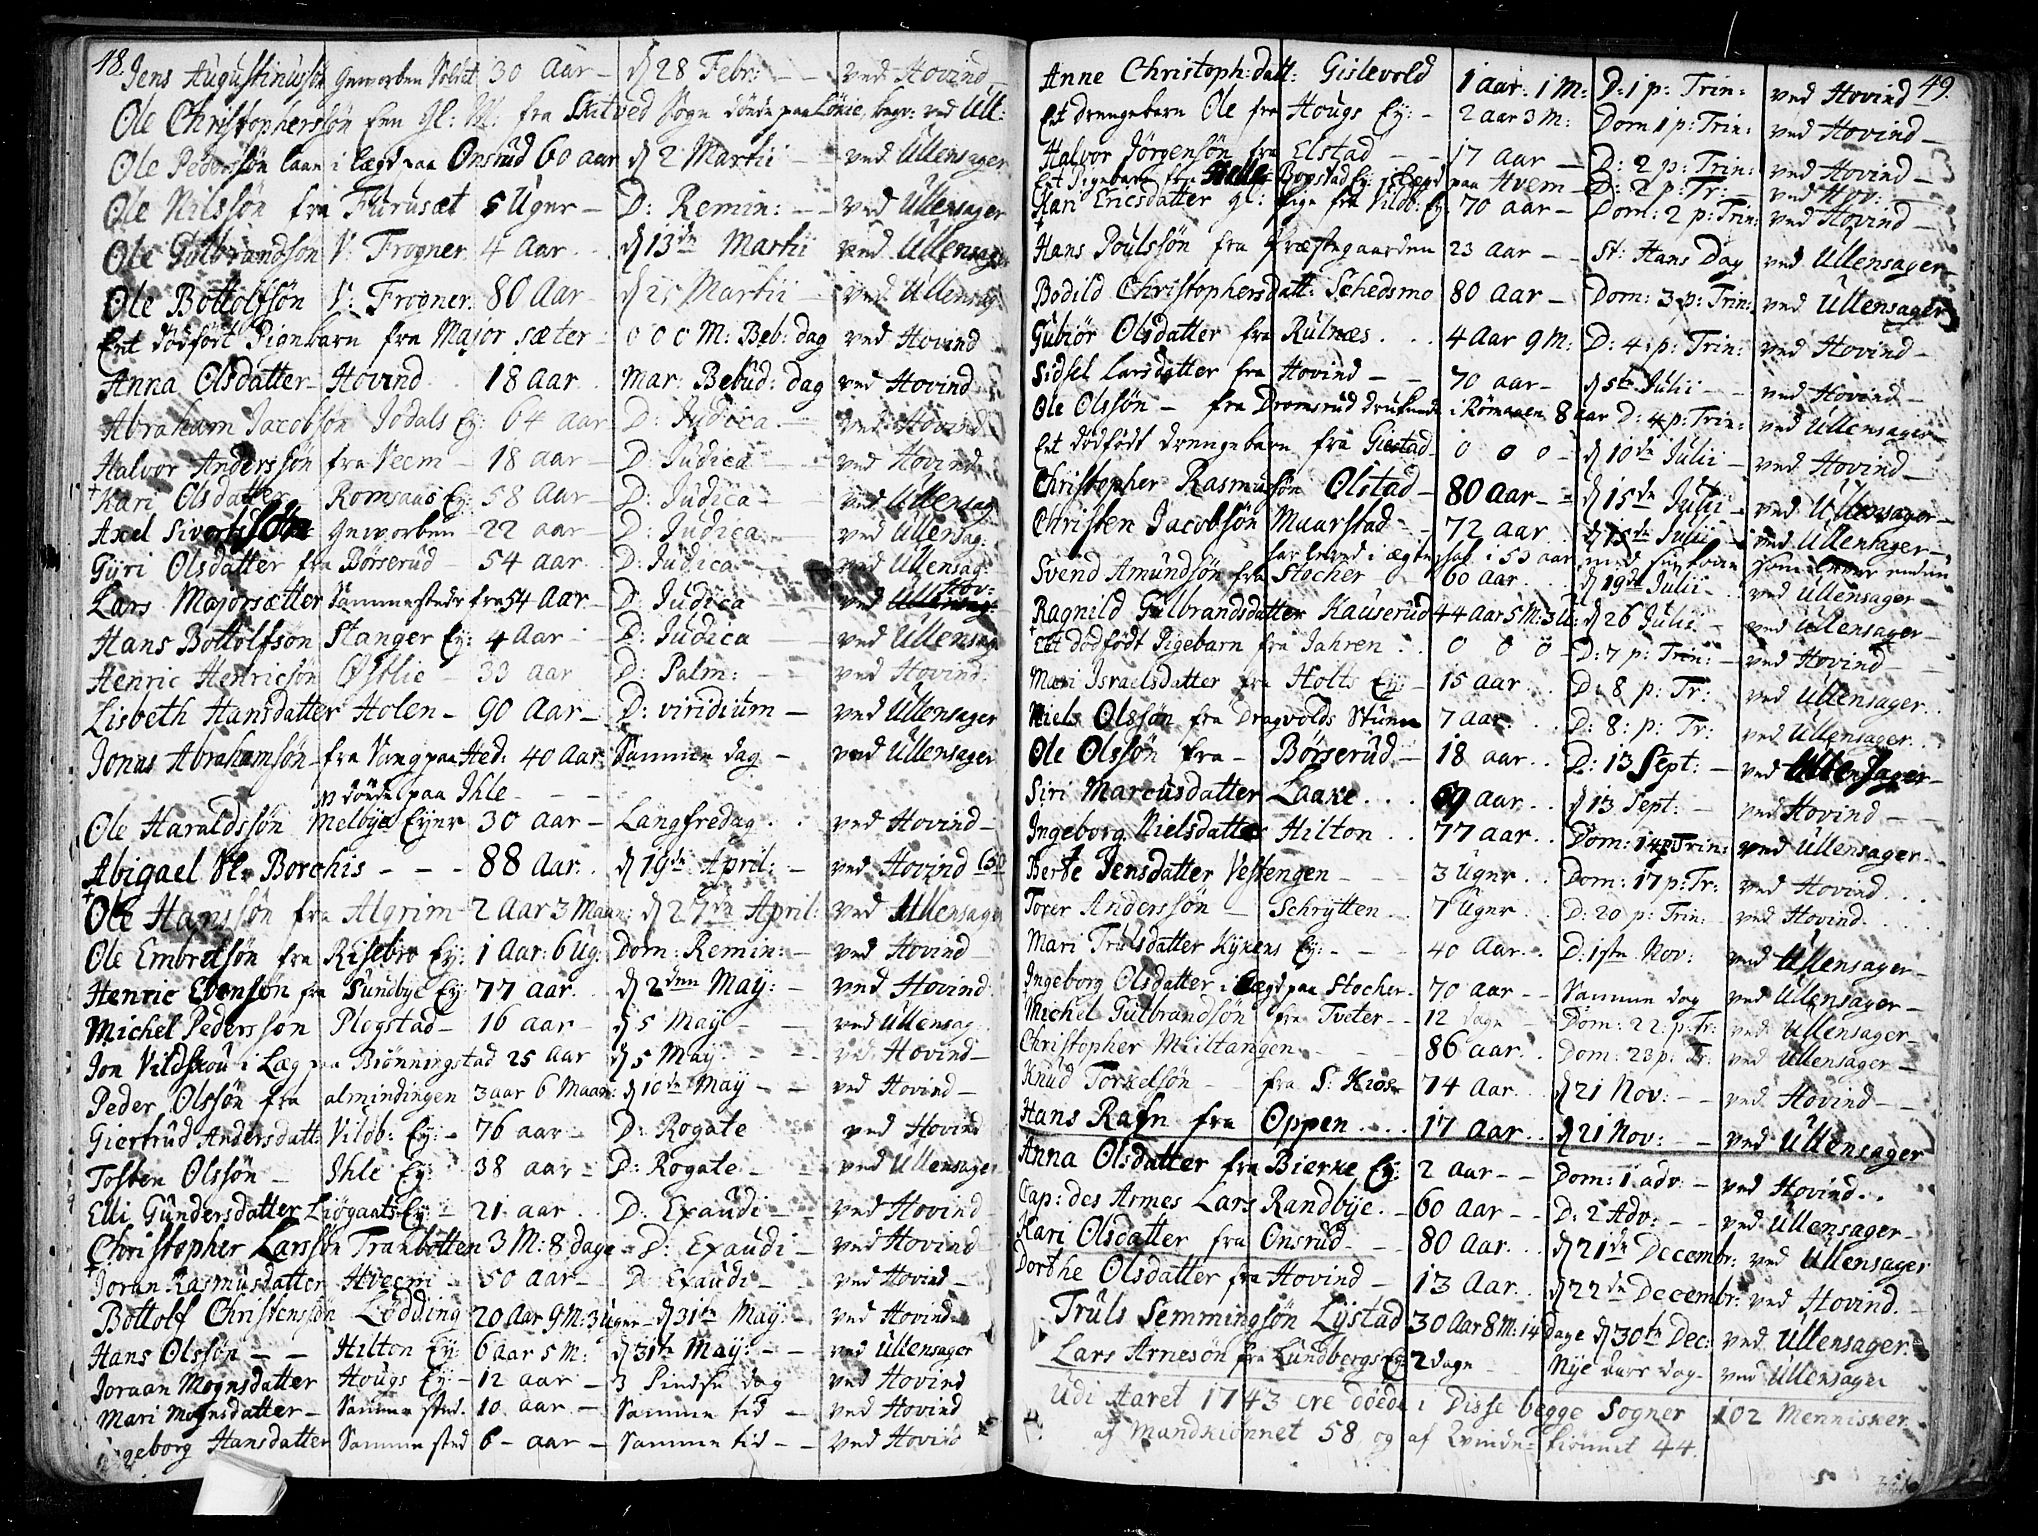 48.
Jens Augustinussøn Geworben Soldat 30 Aar – d 28 Febr: – – ved Hovind –
Ole Christophersøn Een Gl: M: fra Skitved Sogn døde paa Lönie, begr: ved Ull:
Ole Pedersøn laae i lægd paa Onsrud 60 aar d 2 Martii – ved Ullensager
Ole Nilssøn fra Furuset 5 Uger – D: Remin: – – ved Ullensager
Ole Gulbrandsøn N: Frogner 4 Aar – d 13de Martii ved Ullensager
Ole Bottolfsøn N: Frogner 80 Aar – d 25 Martii – ved Ullensag:
Eet dödfödt Pigebarn fra Major sæter – 0 0 0 M: Beb: dag ved Hovind
Anna Olsdatter – Hovind – 18 Aar Mar: Bebud: dag ved Hovind
Abraham Jacobsøn Jodals Ey: 64 Aar D: Judica – ved Hovind
Halvor Anderssøn fra Veem – 18 Aar – D: Judica – ved Hovind
Kari Olsdatter Romsaas Ey: 58 Aar – D: Judica – ved Ullensag
Axel Sivertssøn Geworben – 22 aar – D: Judica – ved Ullensag:
Gyri Olsdatter fra Börserud – 54 aar D: Judica – ved Ullensag
Lars Majorsætter Sammesteds fra 54 Aar – D: Judica – ved Hov:
Hans Bottolfsøn Stanger Ey: 4 Aar – D: Judica – ved Ullensag
Henric Henricsøn Østlie – 33 aar D: Palm: – ved Hovind
Lisbeth Hansdatter Holen – 90 Aar – D: viridium – ved Ullensager
Jonas Abrahamsøn – fra Vang paa Hed: 40 Aar Samme dag – ved Ullensager
døde paa Ihle – – –
Ole Haraldssøn Melbye Eyer 30 aar – Langfredag ved Hovind –
Abigael Sl. Borchis – – – 88 Aar. d 19de April: – ved Hovind
Ole Hanssøn fra Algrim – 2 Aar 3 Maan: d 27de April: ved Ullensager
Ole Embretsøn fra Risebro Ey: 1 Aar: 6 Ug: Dom: Remin: – ved Hovind
Henric Evensøn fra Sundbye Ey: 77 aar. d 2den May: – ved Hovind
Michel Pederssøn Plogstad – 16 aar – d 5 May – – ved Ullensag
Jon Vildskou i Læg paa Biønningstad 25 Aar d 5 May – – ved Hovind –
Peder Olssøn fra almindingen 3 aar 6 Maan: d 10de May – – ved Hovind –
Giertrud Andersdatt: Vilob: Ey: – 76 aar – D: Rogate ved Hovind
Tosten Olssøn – Ihle Ey: 38 aar – D: Rogate – ved Ullensager
Elli Gundersdatter Liøgaats Ey: – 21 aar D: Exaudi – ved Hovind
Christopher Larssøn Tranbotten 3 M: 8 dage – D: Exaudi – ved Hovind
Joran Rasmusdatter Hveem – 50 aar – D: Exaudi – ved Hovind –
Bottolf Christensøn Lødding 20 Aar 9 M: 3 Uger – d 31te May: – ved Hovind
Hans Olssøn – – Hilton Ey: 6 aar 5 M: – d 31te May: – – ved Ullensager
Joraan Mognsdatter Hougs Ey – 12 aar – 3 Pindse dag ved Hovind
Mari Mognsdatter – Samme sted. 10 aar – Samme tid – ved Hovind
Ingeborg Hansdatter Samme sted 6 – aar – Samme tid – – ved Hovind
49.
Anne Christoph: datt: Gislevold 1 aar: 1 M: D: 1 p: Trin: ved Hovind
Eet drengebarn Ole fra Hougs Ey: – 2 aar 3 M: Dom 1 p: Trin: ved Hovind –
Halvor Jörgensön fra Elstad – – 17 Aar – D: 2 p: Trin: ved Hovind –
Eet Pigebarn fra Bopstad Ey: i Lægd paa Hvem – D: 2 p: Tr: – ved Hov: –
Kari Ericsdatter gl: Pige fra Vilob: Ey: 70 aar – Dom: 2 p: Trin: ved Hovind –
Hans Poulssøn fra Præstegaarden 23 Aar – – St: Hans Dag ved Ullensager –
Bodild Christophersdatt: Schedsmo 80 Aar – Dom: 3 p: Trin: ved Ullensager
Gubiör Olsdatter fra Rulnæs . . . 4 Aar 9 M: D: 4 p: Trin: ved Hovind –
Sidsel Larsdatter fra Hovind – – 70 aar – d 5te Julii – – ved Hovind –
Ole Olssøn – fra Dromsrud drukned i Römaaen 8 aar D: 4 p: Trin: ved Ullensager –
Eet dödfödt drengebarn fra Giestad – 0 0 0 – d 10de Julii – ved Hovind –
Christopher Rasmussøn Olstad – 80 aar – – d 15de Julii – ved Ullensager –
Christen Jacobsøn Maarstad – – 72 aar d 15de Julii – ved Ullensager –
har levet i ægteskab i 53 aar med sin kone som lever endnu
Svend Amundsøn fra Stocher – 60 aar . . d 19de Julii – ved Ullensager –
Ragnild Gulbrandsdatter Kauserud 44 aar 5 M: 3 U: d 26 Julii – ved Ullensager –
Eet dödfödt Pigebarn fra Jahren . . 0 0 0 – D: 7 p: Trin: – ved Hovind –
Mari Israelsdatter fra Holts Ey: – 15 aar . . D: 8 p: Tr: ved Ullensager .
Niels Olssøn fra Dragvolds Stuen 7 aar . . D: 8: p: Tr: ved Ullensager .
Ole Olssøn fra – Börserud – 18 aar . . D: 13 Sept: – ved Ullensager –
Siri Marcusdatter Laake . . . 69 aar . . d 13 Sept: – ved Hovind –
Ingeborg Nielsdatter Hilton . . 77 aar . . Dom: 14 p Trin: ved Ullensager –
Berte Jensdatter Vestengen – – – 3 Uger . . Dom: 17 p: Tr: ved Hovind . . .
Torer Anderssøn – Schrytten – 7 Uger . . D: 20 p: Trin: ved Hovind . . .
Mari Trulsdatter Kykens Ey: – – – 40 Aar . . D: 1ste Nov: ved Ullensager –
Ingeborg Olsdatter i Lægd paa Stocher – 70 aar – – Samme dag ved Ullensager –
Michel Gulbrandsøn fra Tveter – – 12 dage – Dom: 22: p: Tr: ved Ullensager –
Christopher Miiltangen – – – 86 aar . . Dom: 23 p: Tr: ved Ullensager –
Knud Torkelsøn – – fra S: Kios – 74 Aar . . d 21 Nov: – – ved Hovind – –
Hans Rafn fra Oppen . . . . 17 Aar . . d 21 Nov: – – ved Ullensager
Anna Olsdatter fra Bierke Ey: 2 aar – – Dom: 1 adv: – ved Hovind . .
Cap: des Armes Lars Randbye . – 60 aar – – D: 2 Adv: – – ved Ullensager –
Kari Olsdatter fra Onsrud – – – 80 Aar . . . d 21de Decembr: ved Ullensager
Dorthe Olsdatter fra Hovind – 13 Aar . . d 22de Decembr: ved Hovind . –
Truls Semmingsøn Lystad 30 Aar 8 M: 14 Dage d 30te Dec: ved Ullensager.
Lars Arnesøn fra Lundbergs Ey: 2 dage – Nye Aars dag – ved Ullensager
Udi Aaret 1743 ere døde i Disse begge Sogner 102 Mennisker
af Mandkiönnet 58, og af Qvinde-kiönnet 44.